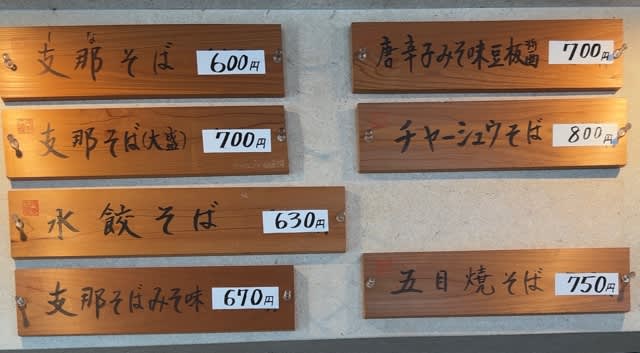 しな
支那そば 600円
支那そば(大盛) 700円
水餃そば 630円
支那そばみそ味 670円
唐辛子みそ味豆板醤麺 700円
チャーシュウそば 800円
五目焼そば 750円